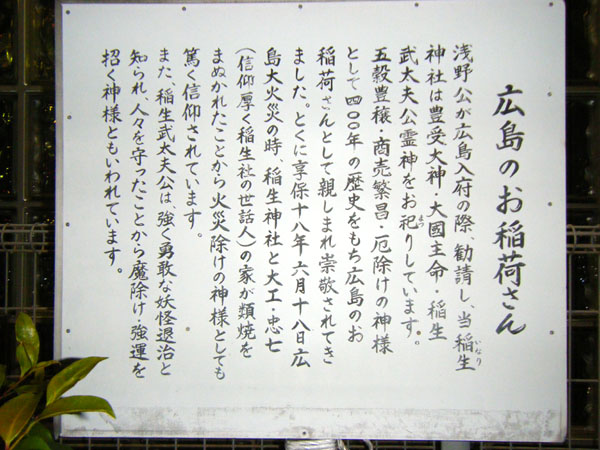 広島のお稲荷さん
浅野公が広島入府の際、勧請し、当稲生
いなり
神社は豊受大神・大國主命・稲生
武太夫公霊神をお祀りしています。
まつ
五穀豊穣・商売繁昌・厄除けの神様
として四〇〇年の歴史をもち広島のお
稲荷さんとして親しまれ崇敬されてき
ました。とくに享保十八年六月十八日広
島大火災の時、稲生神社と大工・忠七
(信仰厚く稲生社の世話人)の家が類焼を
まぬかれたことから火災除けの神様としても
篤く信仰されています。
また、稲生武太夫公は、強く勇敢な妖怪退治と
知られ、人々を守ったことから魔除け、強運を
招く神様ともいわれています。